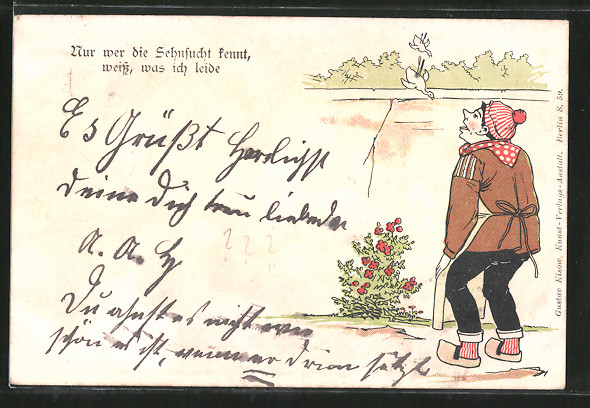 Nur wer die Sehnsucht kennt,
weiß, was ich leide
Es Grüßt Herzlichst
deine Dich treu liebende
A. A. H
? ? ?
Du ahnst es nicht wie
schön es ist, wenn er drin sitzt
Gustav Kisow, Kunst-Verlags-Anstalt. Berlin S. 59.